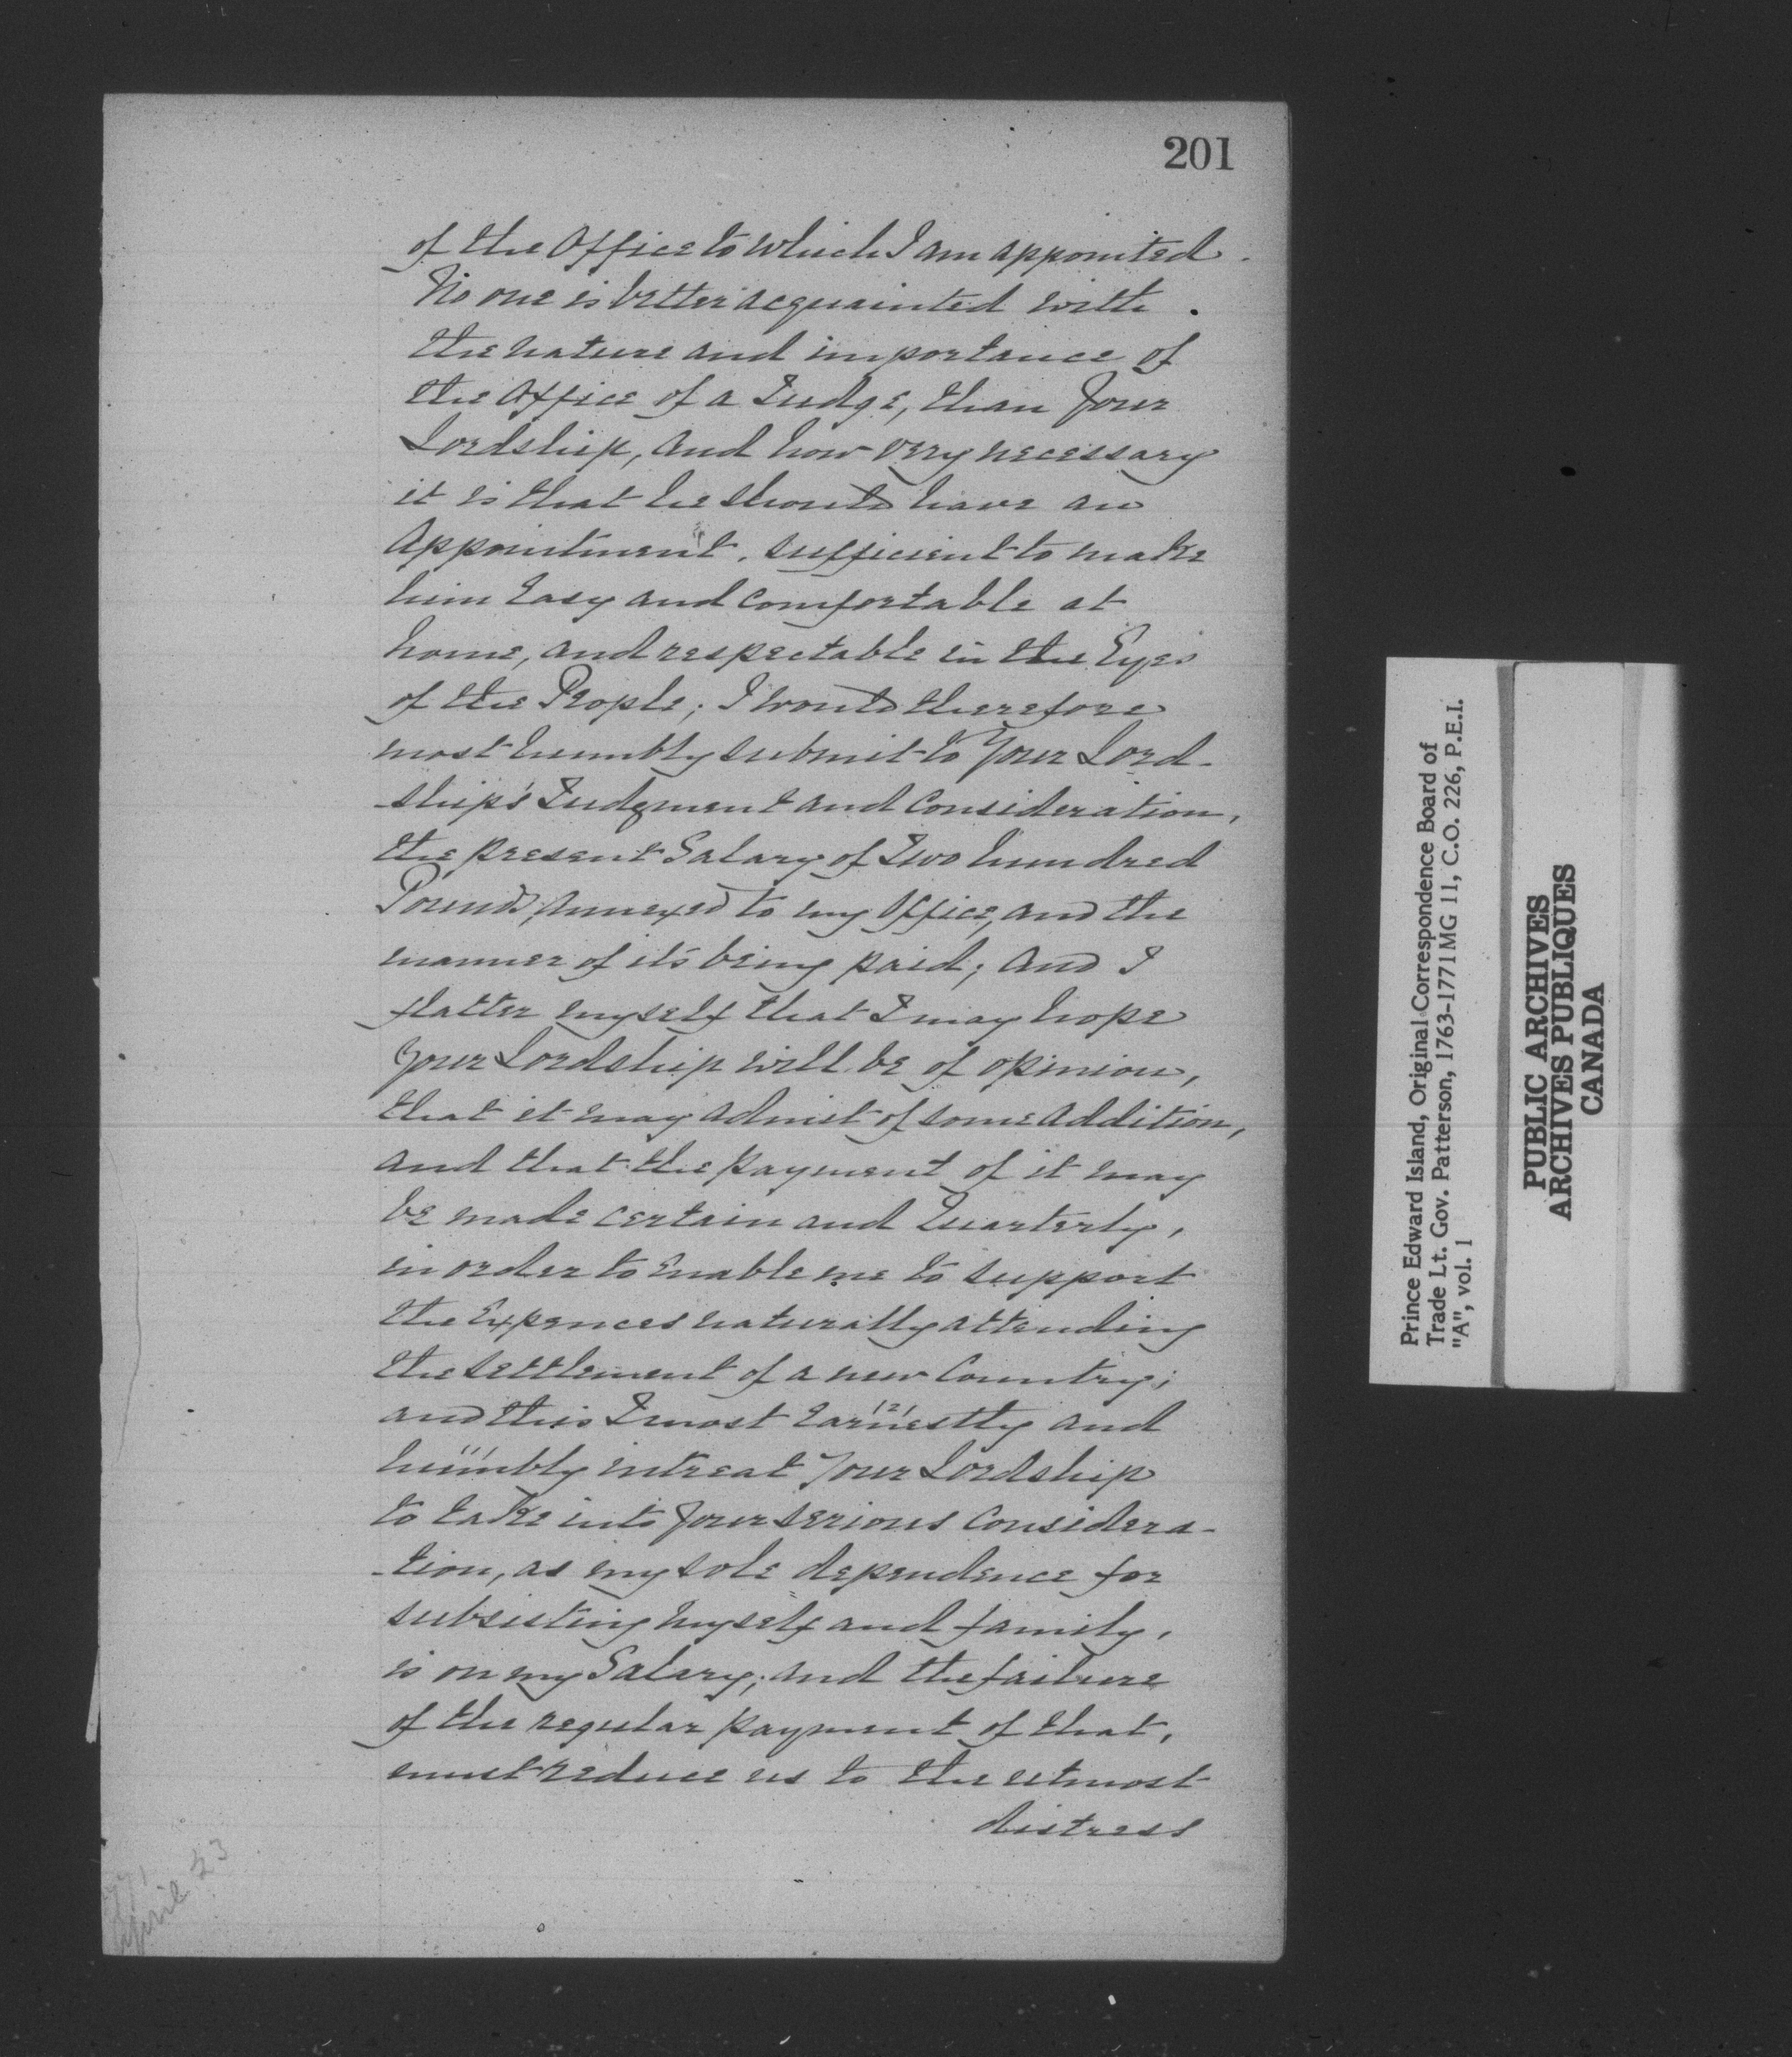 201
of the Office to which I am appointed.
No one is better acquainted with
the nature and importance of
the Office of a Judge, than Your
Lordship, and how very necessary
it is that he should have an
Appointment, sufficient to make
him Easy and Comfortable at
home, and respectable in the Eyes
of the People; I would therefore
most humbly submit to Your Lord-
-ship's Judgment and Consideration,
the present Salary of Two hundred
Pounds, annexed to my Office, and the
manner of it's being paid; and I
flatter myself that I may hope
Your Lordship will be of opinion,
that it may admit of some addition,
and that the payment of it may
be made certain and Quarterly,
in order to Enable me to support
the Expences naturally attending
the settlement of a new Country;
and this I most Earnestly and
humbly intreat Your Lordship
to take into Your serious Considera-
-tion, as my sole dependence for
subsisting myself and family,
is on my Salary; and the failure
of the regular payment of that,
must reduce us to the utmost
distress
April 23
Prince Edward Island, Original Correspondence Board of
Trade Lt. Gov. Patterson, 1763-1771 MG 11, C.O. 226, P.E.I.
"A", vol. 1
PUBLIC ARCHIVES
ARCHIVES PUBLIQUES
CANADA